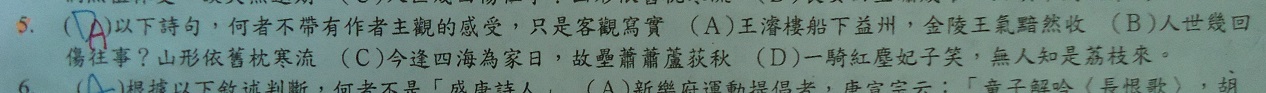 5. (A)以下詩句，何者不帶有作者主觀的感受，只是客觀寫實 (A)王濬樓船下益州，金陵王氣黯然收 (B)人世幾回
傷往事？山形依舊枕寒流 (C)今逢四海為家日，故壘蕭蕭蘆荻秋 (D)一騎紅塵妃子笑，無人知是荔枝來。
6. (A)根據以下敘述判斷，何者不是「盛唐詩人」 (A)新樂府運動提倡者，唐宣宗云：「童子解吟〈長恨歌〉，胡